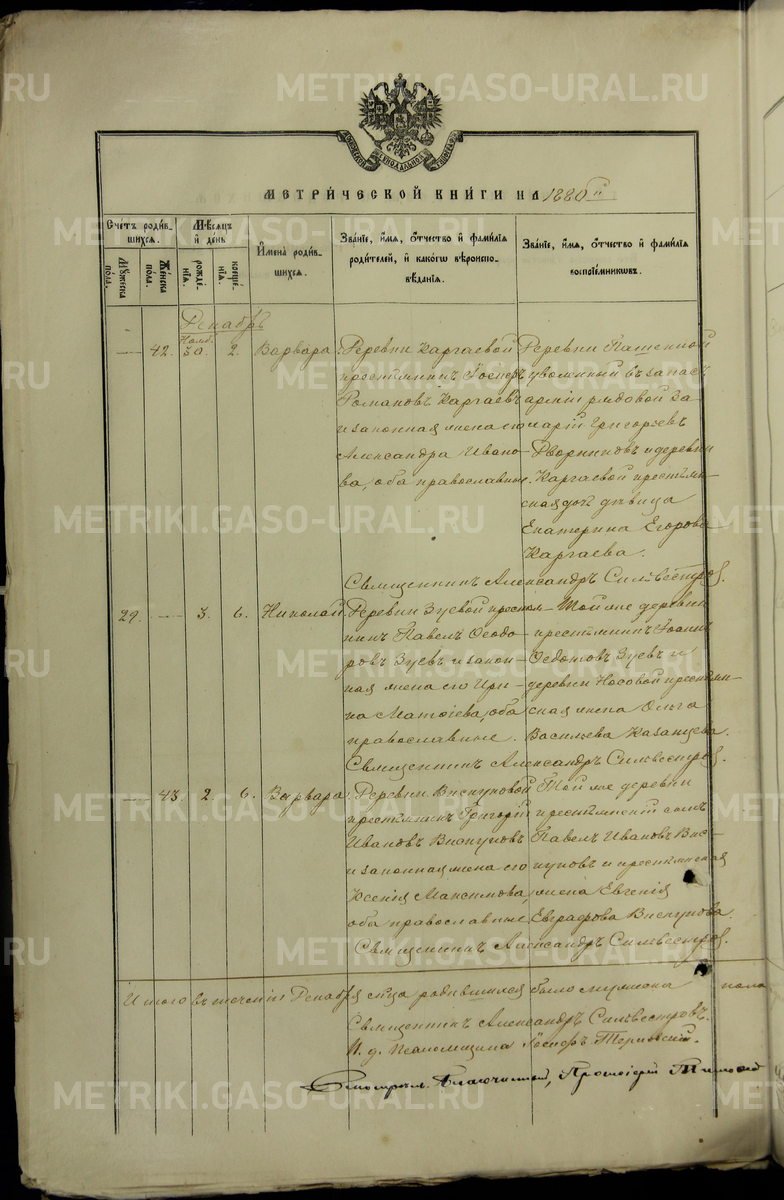 МЕТРИ́ЧЕСКОЙ КНИ́ГИ НА 1880й
Счетъ родив-
шихся.
Мужеска
пола.
Женска
пола.
Мѣсяцъ
и день
рожде-
нія.
креще-
нія.
Имена родив-
шихся.
Званіе, имя, отчество и фамилія
родителей, и какого вѣроиспо-
вѣданія.
Званіе, имя, отчество и фамилія
воспріемниковъ.
Декабрь
Нояб.
42. 30. 2. Варвара
Деревни Каргаевой
крестьянинъ Іосифъ
Романовъ Каргаевъ
и законная жена его
Александра Ивано-
ва, оба православные.
Деревни Пашенной
уволенный въ запасъ
арміи рядовой За-
харій Григорьевъ
Дворниковъ и деревни
Каргаевой крестьян-
ская дочь дѣвица
Екатерина Егорова
Каргаева.
Священникъ Александръ Сильвестровъ.
29. 3. 6. Николай
Деревни Зуевой крестья-
нинъ Павелъ Ѳеодо-
ровъ Зуевъ и закон-
ная жена его Ири-
на Матѳіева, оба
православные.
Той же деревни
крестьянинъ Іоаннъ
Ѳедотовъ Зуевъ и
деревни Носовой крестьян-
ская жена Ольга
Васильева Казанцева.
Священникъ Александръ Сильвестровъ.
43. 2. 6. Варвара
Деревни Вискуновой
крестьянинъ Григорій
Ивановъ Вискуновъ
и законная жена его
Ксенія Максимова,
оба православные.
Той же деревни
крестьянскій сынъ
Павелъ Ивановъ Вис-
куновъ и крестьянская
жена Евгенія
Евграфова Вискунова.
Священникъ Александръ Сильвестровъ.
Итого въ теченіи Декабря м-ца родившихся было мужеска пола
Священникъ Александръ Сильвестровъ.
И. д. Псаломщика Іосифъ
Благочинный, Протоіерей
METRIKI.GASO-URAL.RU